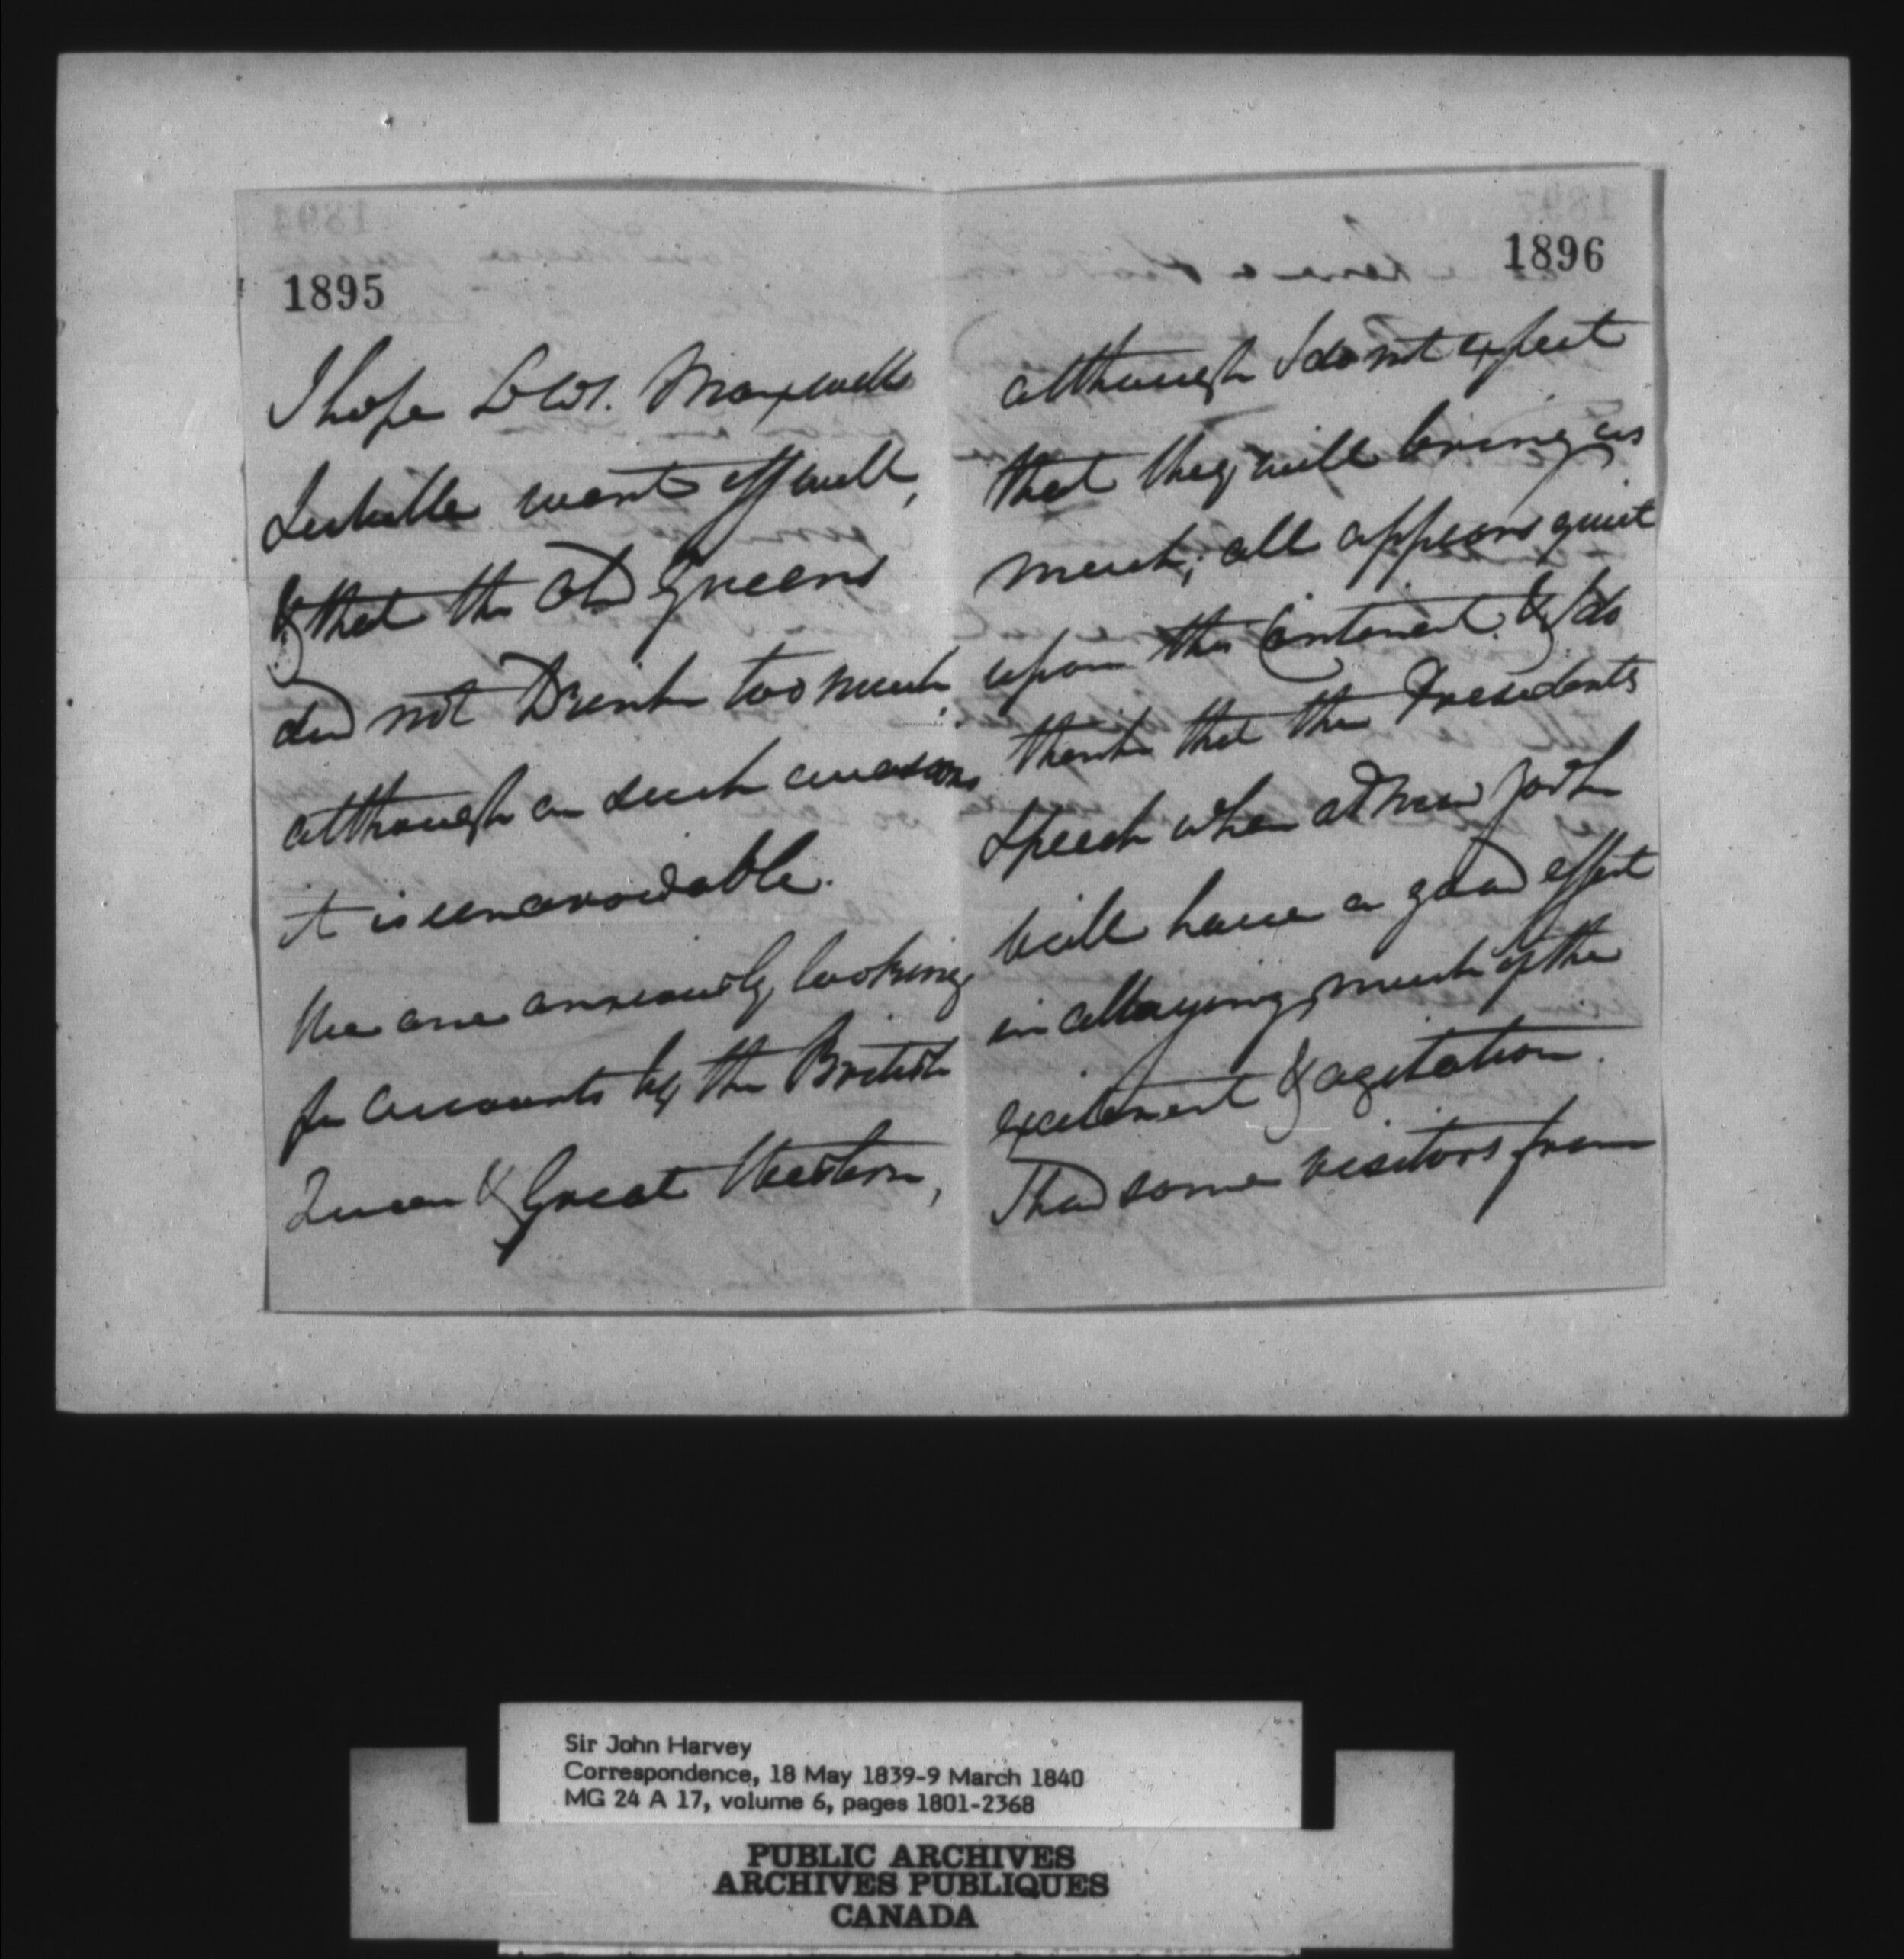 1895
I hope Lt Col. Maxwells
went off well,
& that the Old Greens
did not Drink too much,
although on such occasions
it is unavoidable.
We are anxiously looking
for accounts by the British
Queen & Great Western,
1896
although I do not expect
that they will bring us
much; all appears quiet
upon this Continent. & I do
think that the Presidents
Speech when at New York
will have a good effect
in allaying much of the
excitement & agitation.
I had some visitors from
Sir John Harvey
Correspondence, 18 May 1839-9 March 1840
MG 24 A 17, volume 6, pages 1801-2368
PUBLIC ARCHIVES
ARCHIVES PUBLIQUES
CANADA